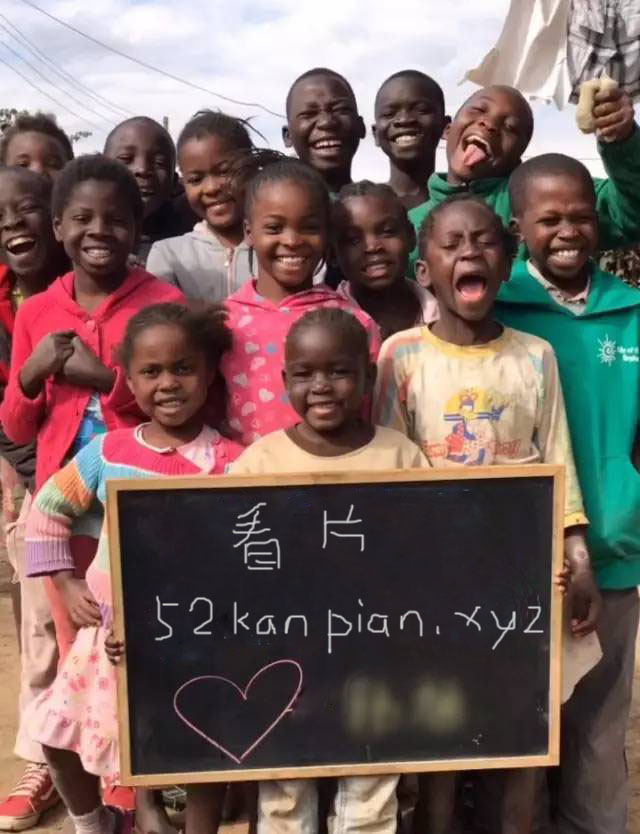 看片
52kanpian.xyz